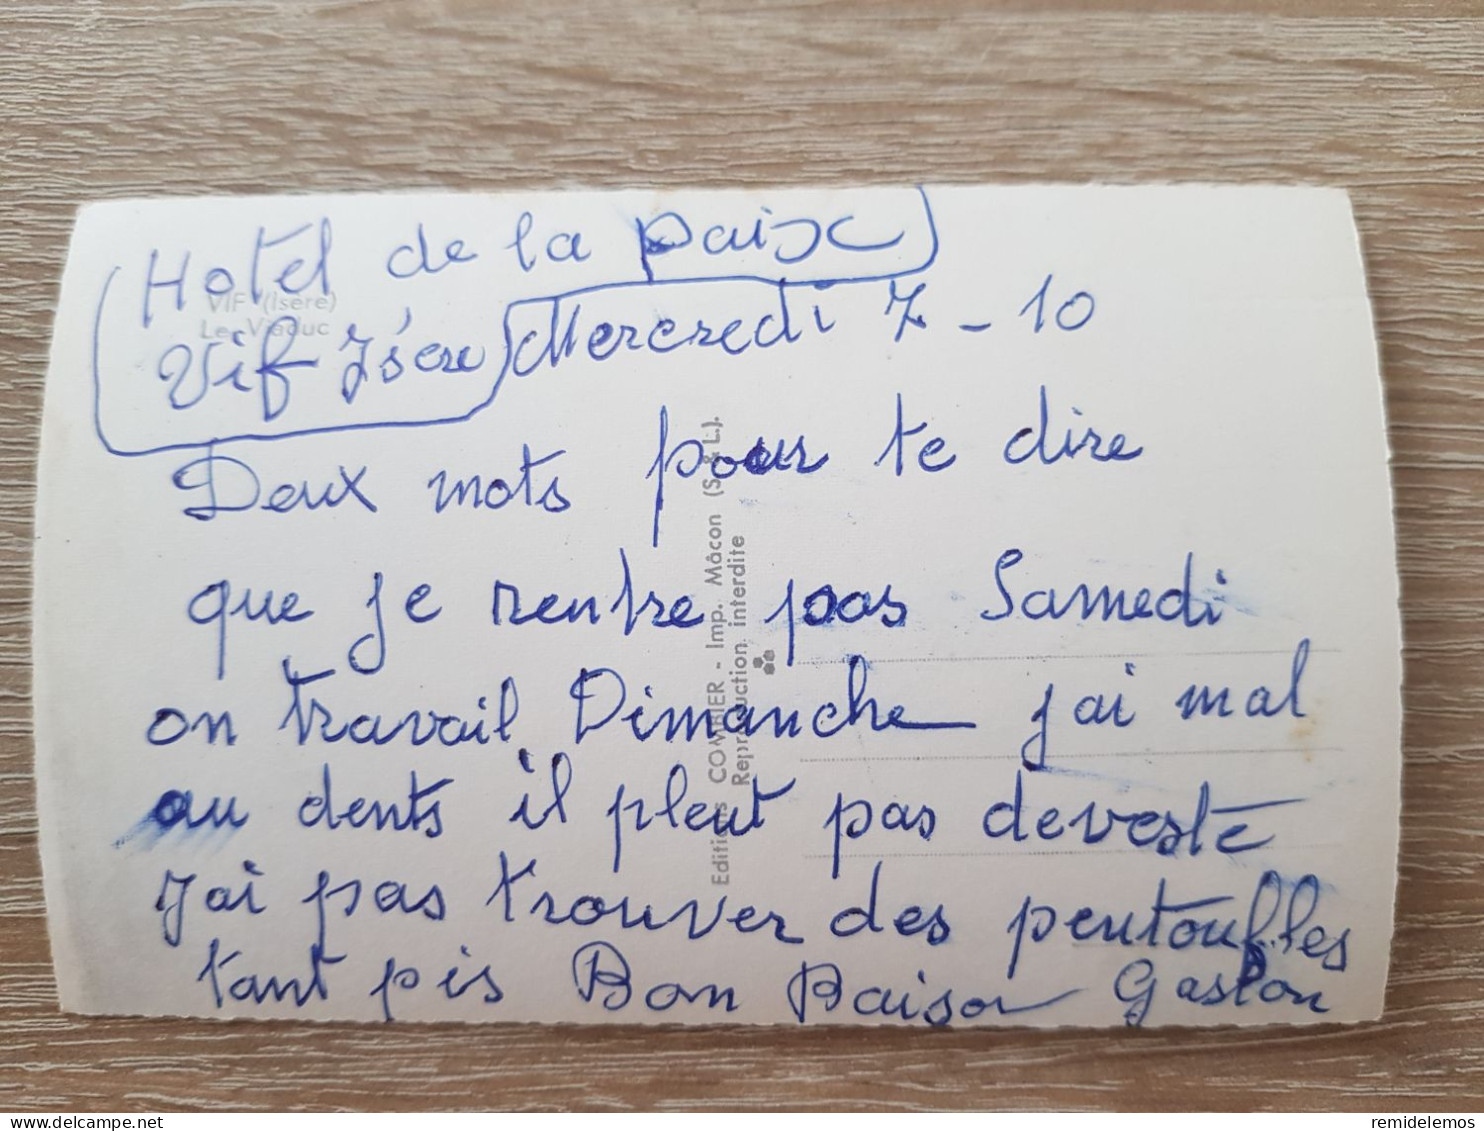 Hotel de la paix
VIF (Isère)
Le Viaduc
Vif Isère Mercredi 7 - 10
Deux mots pour te dire
que je rentre pas Samedi
on travail Dimanche jai mal
au dents il pleut pas de veste
Jai pas trouver des pentoufles
tant pis Bon Baison Gaston
Editions COMBIER - Imp. Mâcon (S. & L.).
Reproduction interdite
delcampe.net
remidelemos